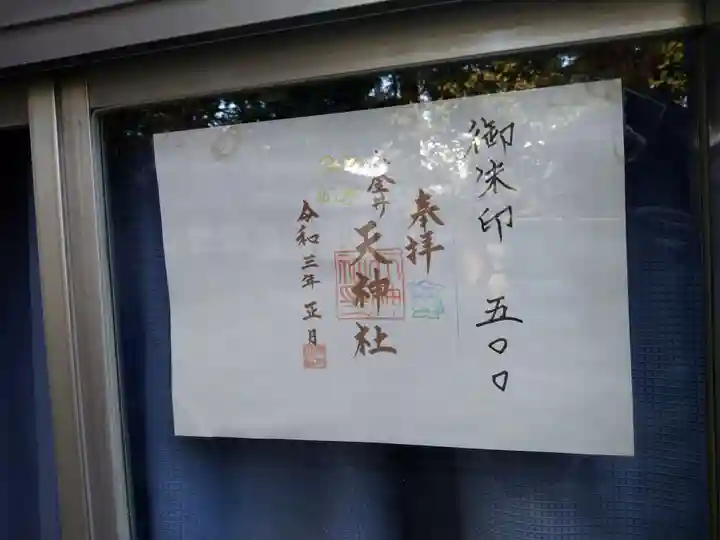 御朱印 五〇〇
奉拝
小金井
天神社
令和三年 正月